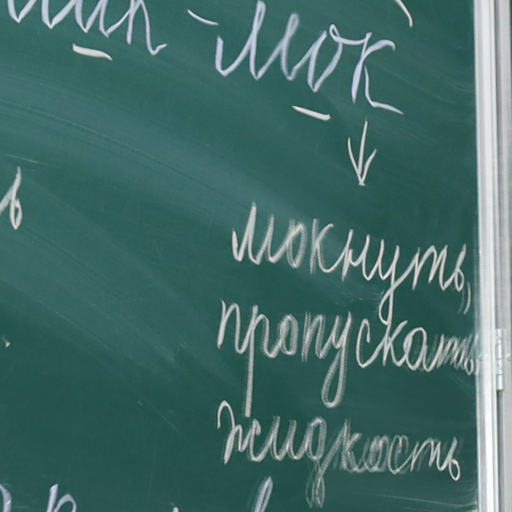 -мок
мокнуть,
пропускать
жидкость